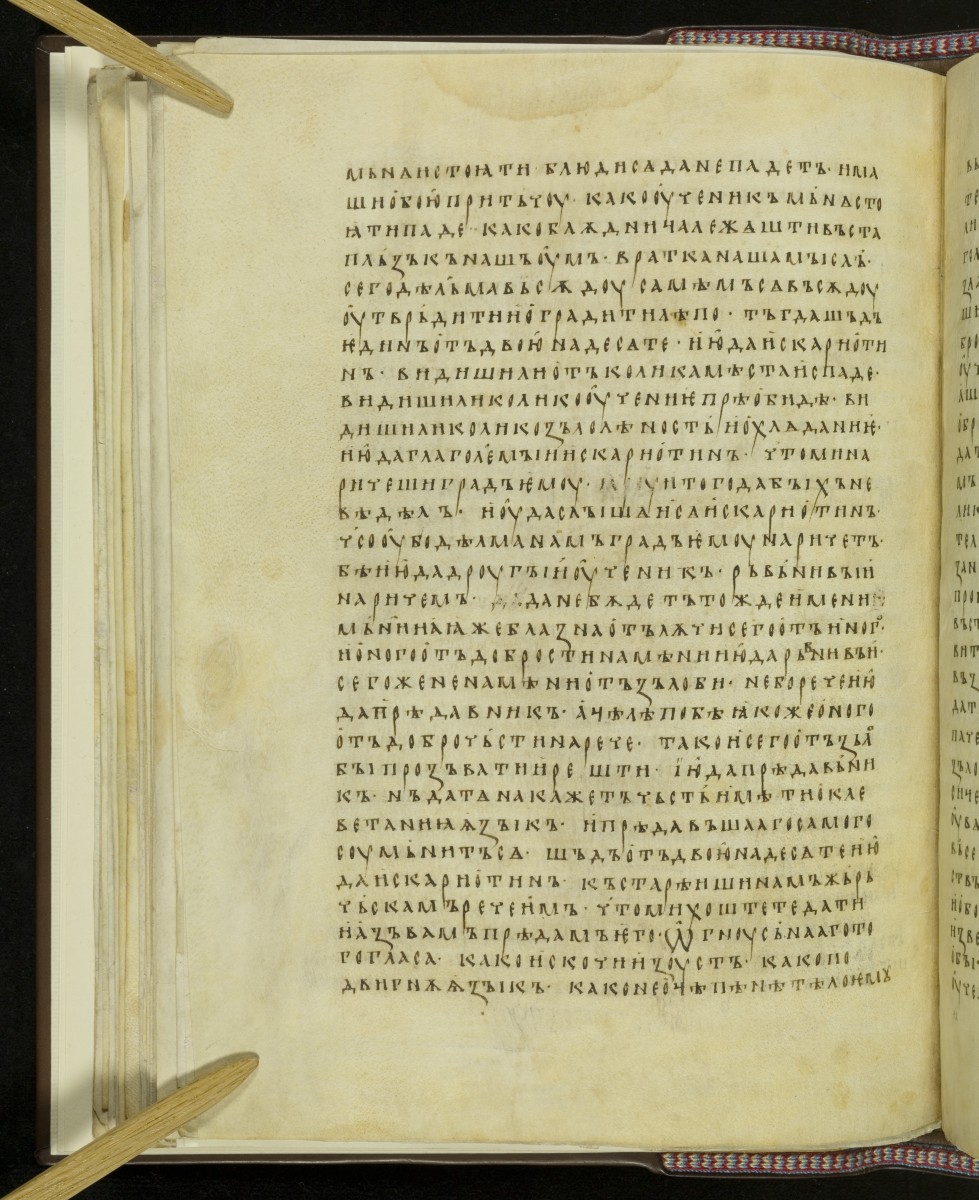 мьнѧи стоꙗти· блюди сѧ да не падетъ· има
ши ѹбою притъчоу· како ѹченикъ мьнѧ сто
ꙗти паде· како блѫдьничꙗ лежѧшти въста
пльзъкъ нашъ ѹмъ· вратка наша мꙑсль·
сего дѣльма вьсѫдоу сами мъ сѧ вьсѫдоу
ѹтврьдити и оградити лѣпо· тъгда шъдъ
ѥдинъ отъ двою на десѧте· июда искариоти
нъ· видиши ли отъ колика мѣста испаде·
видиши ли колико ѹчениѥ прѣобидѣ· ви
диши ли колико зъло лѣность и охлаждениѥ·
июда глаголемꙑи искариотинъ· что ми на
ричеши градъ ѥмоу· и того да бꙑхъ не
вѣдѣлъ· июда слꙑша и сь искариотинъ·
чсо ѹбо дѣльма намъ градъ ѥмоу наричетъ·
бѣ июда дроугꙑи ѹченикъ· рьвьнивꙑи
наричемъ· да не бѫдетъ тожде имени
мьниꙗꙗ же блазна отълѫчи сего отъ иного·
ѹ оного отъ добрости намѣни июда рьвьнивꙑи·
сего же не намѣни отъ зълоби· не бо рече ию
да прѣдавьникъ· а че лѣпо бѣ ꙗко же оного
отъ доброчьсти нарече· тако и сего отъ зъло
бꙑ прозъвати и решти· июда прѣдавьни
къ· нъ да тѧ накажетъ чьсть имѣти о кле
ветании ѧзꙑкъ· и прѣдавъшааго самого
соумьнитъ сѧ· шъдъ отъ двою на десѧте ию
да искариотинъ· къ старѣишинамъ жьрь
чьскамъ рече имъ· что ми хоштете дати
и азъ вамъ прѣдамъ ѥго· ѡ гноусьнааго то
го гласа· како искочи из оустъ· како по
движѫ ѧзꙑкъ· како не оцѣпѣнѣ тѣло ѥмꙋ